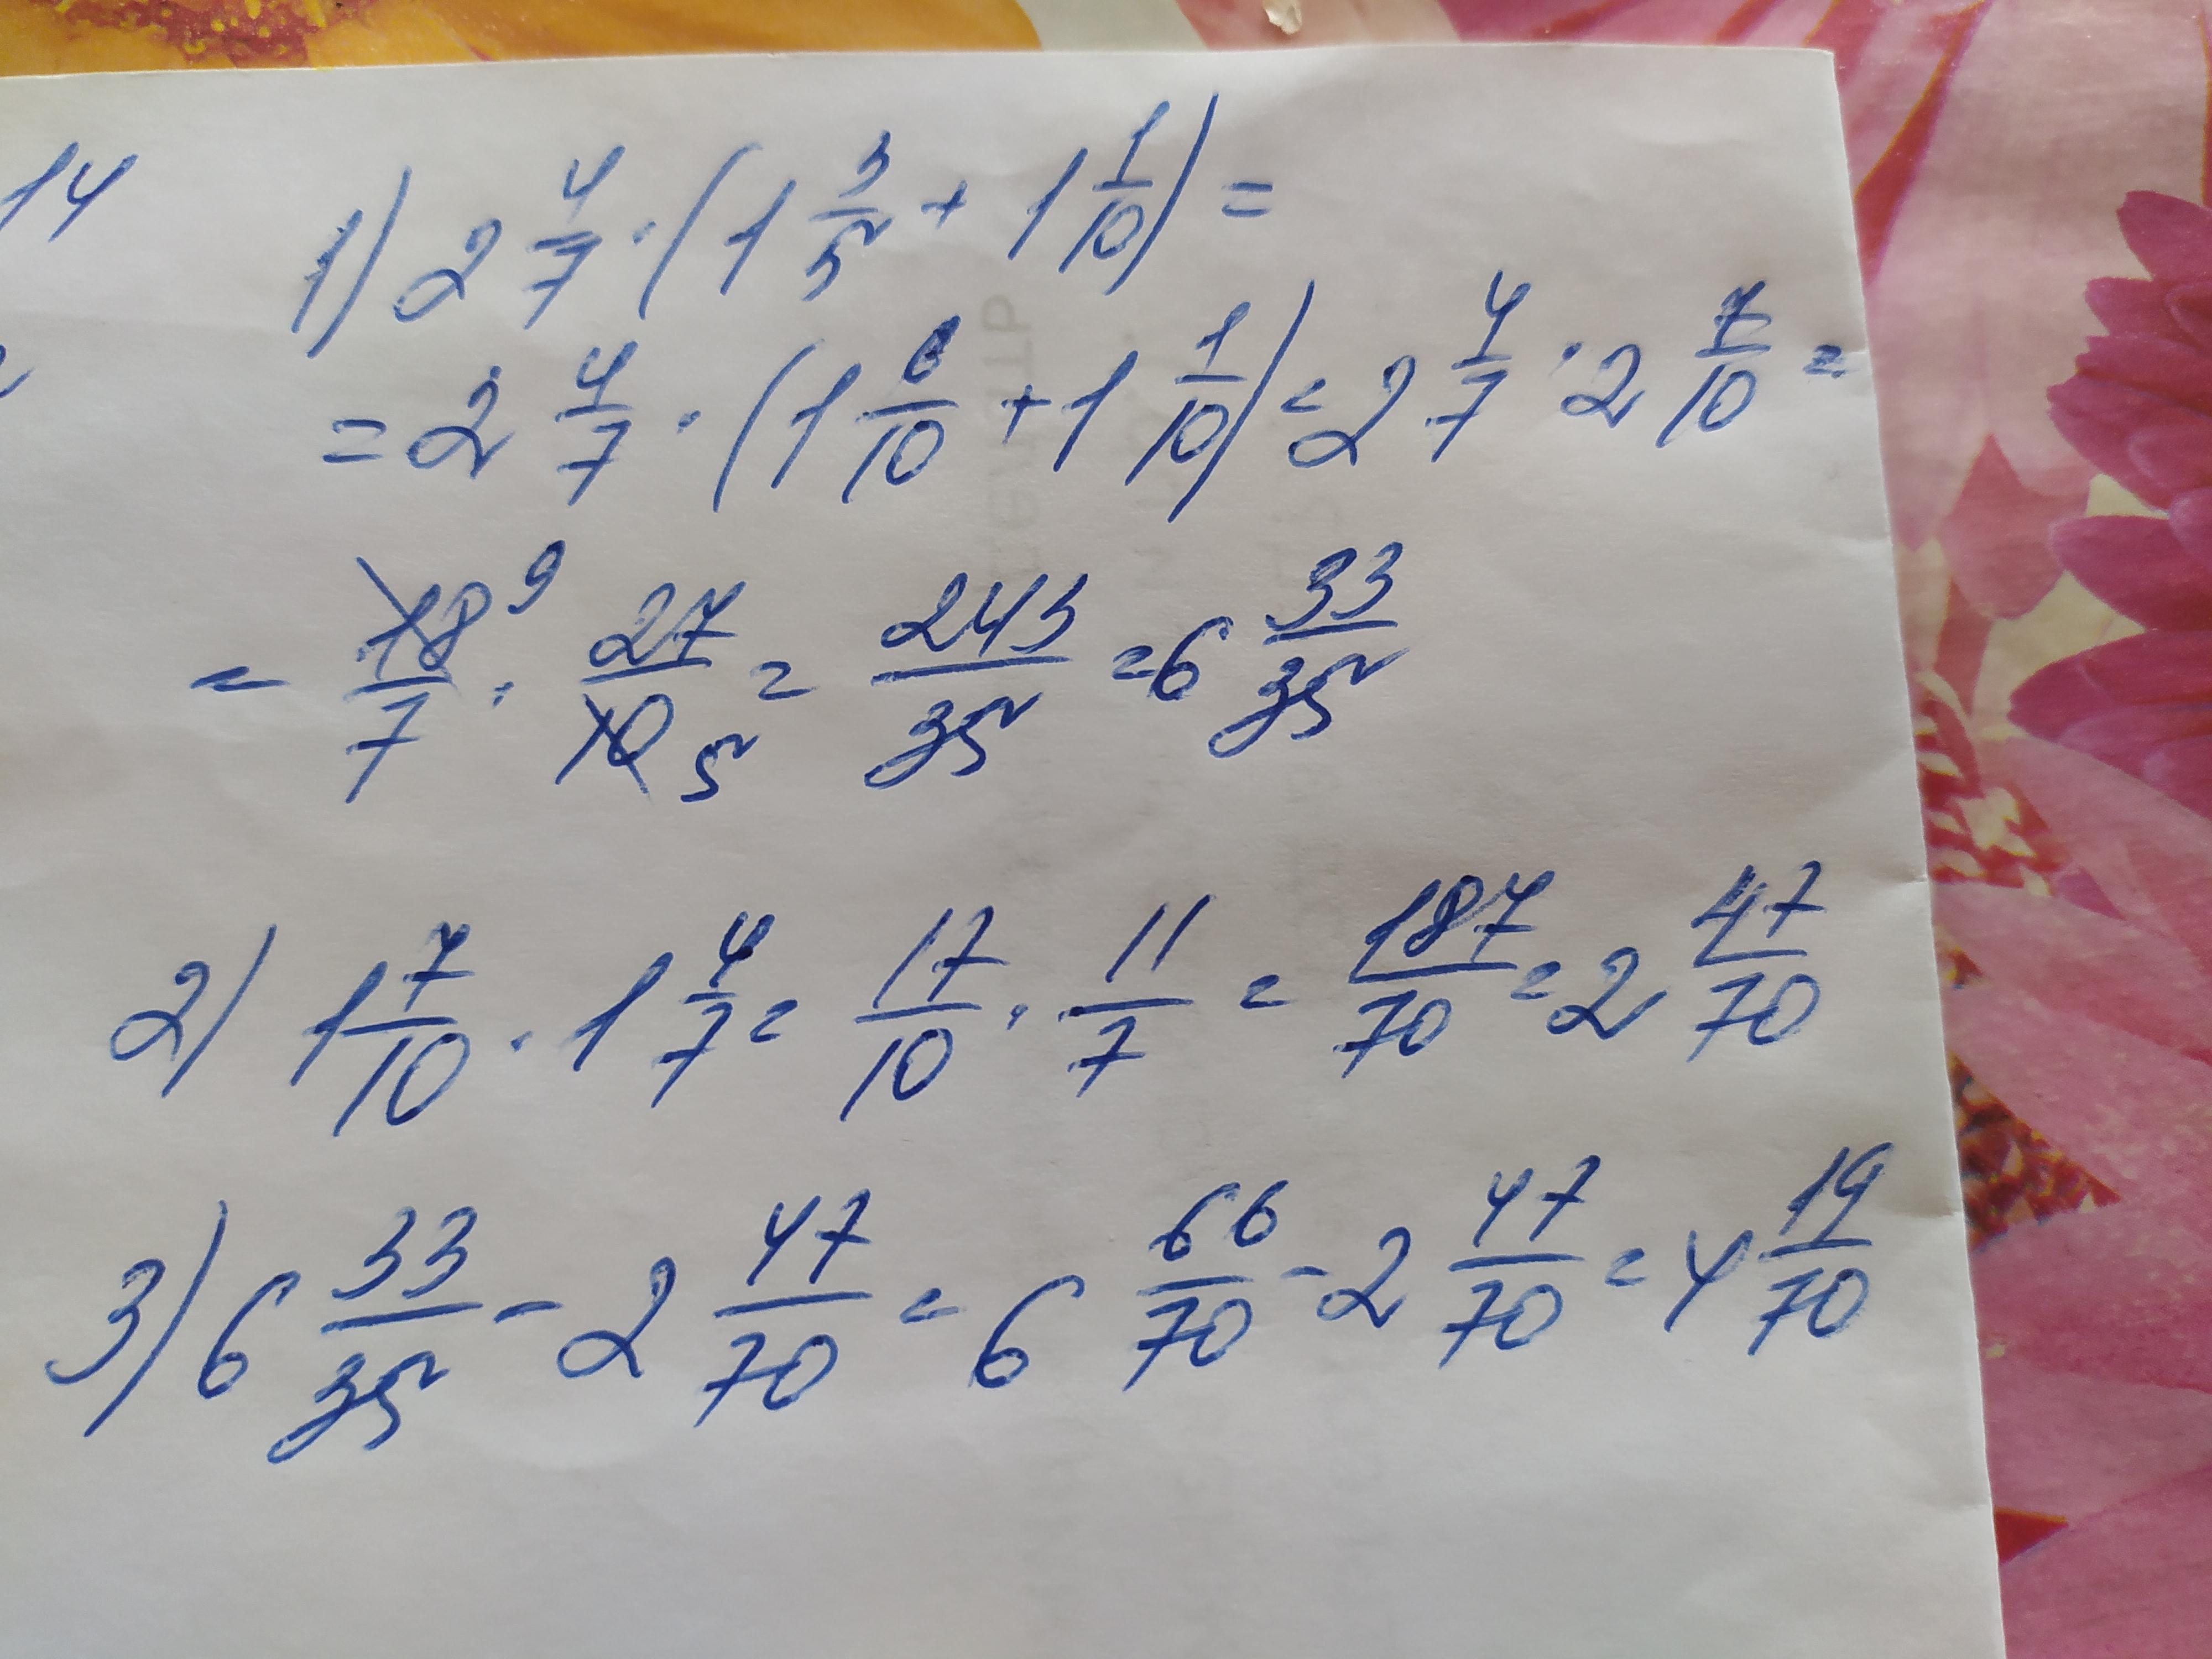 14
1) 2 4/7 · (1 3/5 + 1 1/10) =
= 2 4/7 · (1 6/10 + 1 1/10) = 2 4/7 · 2 7/10 =
= 18 9/7 · 27/10 5 = 243/35 = 6 33/35
2) 1 7/10 · 1 4/7 = 17/10 · 11/7 = 187/70 = 2 47/70
3) 6 33/35 - 2 47/70 = 6 66/70 - 2 47/70 = 4 19/70